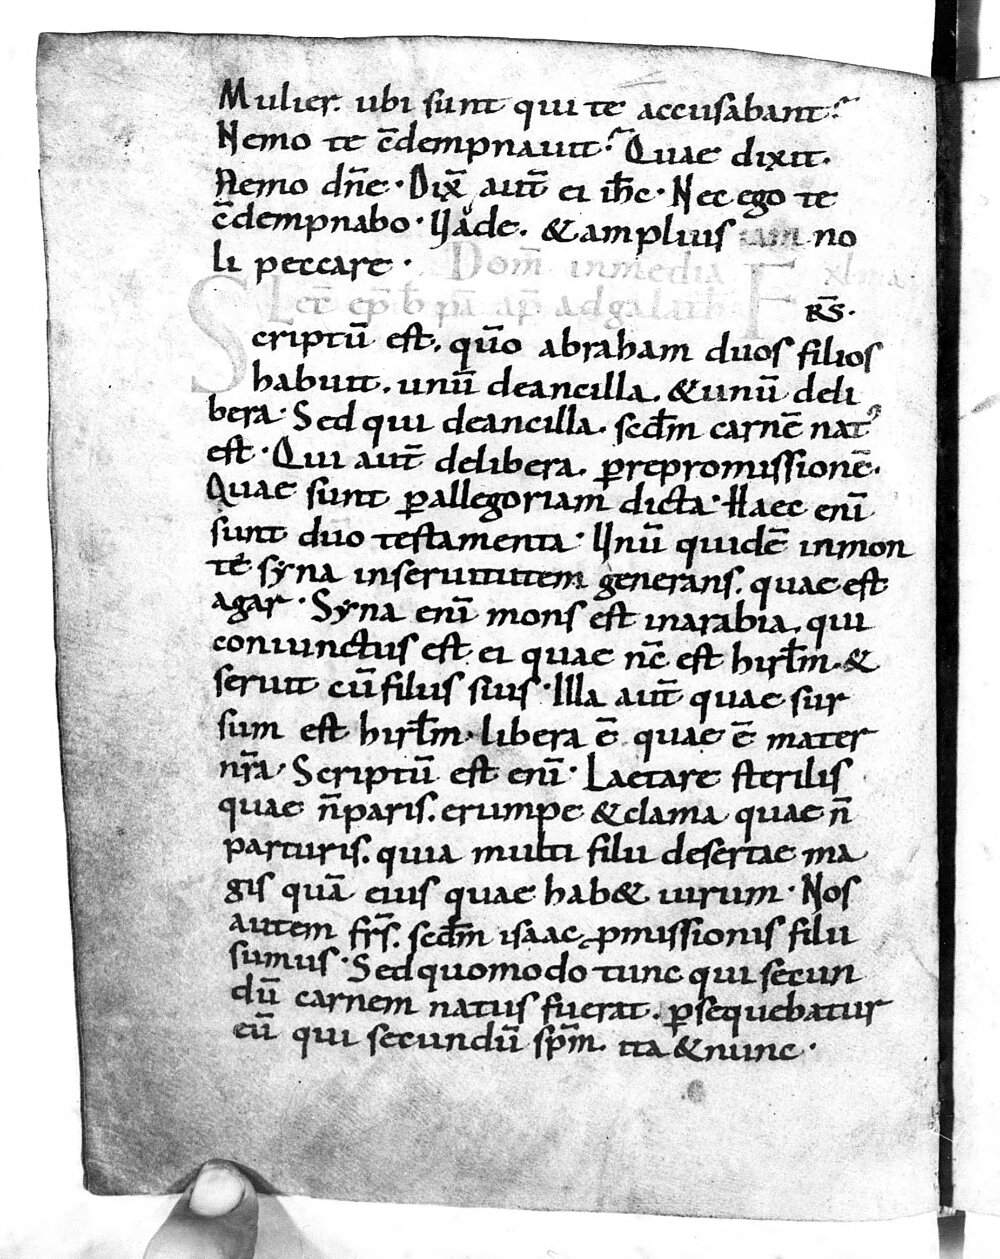 Mulier. ubi sunt qui te accusabant?
Nemo te c̄dempnauit? Quae dixit.
Nemo dn̄e. Dix̄ aut̄ ei ih̄c. Nec ego te
c̄dempnabo. Uade. & amplius iam no
li peccare. Dom̄ inmedia xl ma
Lec̄ ep̄ b̄ pa̅ ap̄ adgalath F
R̄S.
Scriptū est. qūo abraham duos filios
habuit. unū deancilla. & unū deli
bera. Sed qui deancilla. scd̄m carnē natꝰ
est. Qui aut̄ delibera. ꝑrepromissionē.
Quae sunt ꝑallegoriam dicta. Haec enī
sunt dūo testamenta. Unū quidē inmon
te syna inseruitutem generans. quae est
agar. Syna enī mons est inarabia. qui
coniunctus est ei quae nc̄ est hirłm. &
seruit cū filiis suis. Illa aut̄ quae sur
sum est hirłm. libera ē. quae ē mater
nr̄a. Scriptū est enī. Laetare sterilis
quae n̄ paris. erumpe & clama quae n̄
parturis. quia multi filii desertae ma
gis quā eius quae hab& uirum. Nos
autem fr̄s. scd̄m isaac ꝓmissionis filii
sumus. Sed quomodo tunc qui secun
dū carnem natus fuerat. ꝑsequebatur
eū qui secundū sp̄m. ita & nunc.